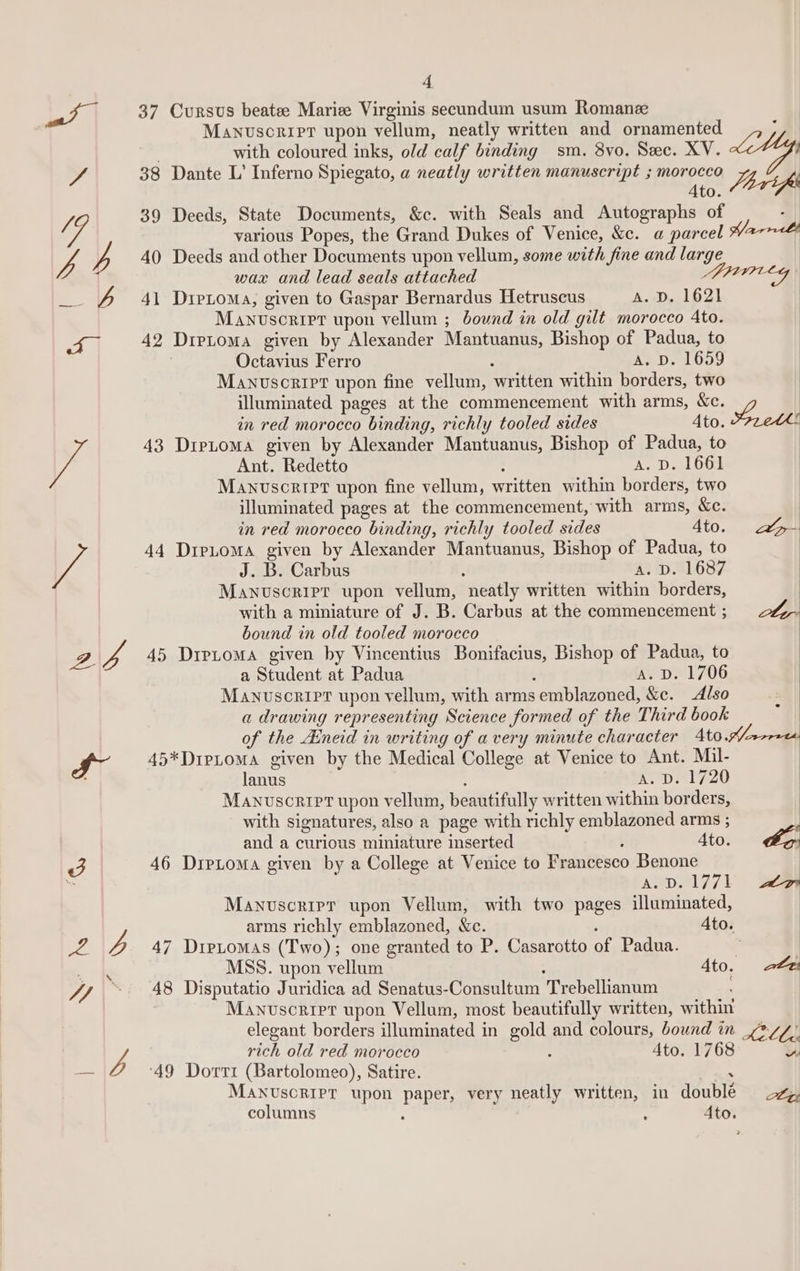 4
37 Cursus beatæ Mariæ Virginis secundum usum Romanæ
Manuscript upon vellum, neatly written and ornamented
with coloured inks, old calf binding sm. 8vo. Sæc. XV.
38 Dante L' Inferno Spiegato, a neatly written manuscript ; morocco
4to.
39 Deeds, State Documents, &c. with Seals and Autographs of
19 various Popes, the Grand Dukes of Venice, &c. a parcel
40 Deeds and other Documents upon vellum, some with fine and large
wax and lead seals attached
41 Diploma, given to Gaspar Bernardus Hetruscus A. D. 1621
Manuscript upon vellum ; bound in old gilt morocco 4to.
42 Diploma given by Alexander Mantuanus, Bishop of Padua, to
Octavius Ferro . A. D. 1659
Manuscript upon fine vellum, written within borders, two
illuminated pages at the commencement with arms, &c.
in red morocco binding, richly tooled sides 4to.
43 Diploma given by Alexander Mantuanus, Bishop of Padua, to
7 Ant. Redetto . A. D. 1661
Manuscript upon fine vellum, written within borders, two
illuminated pages at the commencement, with arms, &c.
in red morocco binding, richly tooled sides 4to.
44 Diploma given by Alexander Mantuanus, Bishop of Padua, to
7 J. B. Carbus . A. D. 1687
Manuscript upon vellum, neatly written within borders,
with a miniature of J. B. Carbus at the commencement ;
bound in old tooled morocco
45 Diploma given by Vincentius Bonifacius, Bishop of Padua, to
a Student at Padua . A. D. 1706
Manuscript upon vellum, with arms emblazoned, &c. Also
a drawing representing Science formed of the Third book
of the Æneid in writing of a very minute character 4to.
45*Diploma given by the Medical College at Venice to Ant. Mil-
lanus . A. D. 1720
Manuscript upon vellum, beautifully written within borders,
with signatures, also a page with richly emblazoned arms ;
and a curious miniature inserted . 4to.
3 46 Diploma given by a College at Venice to Francesco Benone
A. D. 1771
Manuscript upon Vellum, with two pages illuminated,
arms richly emblazoned, &c. . 4to.
47 Diplomas (Two); one granted to P. Casarotto of Padua.
MSS. upon vellum . 4to.
48 Disputatio Juridica ad Senatus-Consultum Trebellianum
Manuscript upon Vellum, most beautifully written, within
elegant borders illuminated in gold and colours, bound in
rich old red morocco . 4to. 1768
49 Dotti (Bartolomeo), Satire.
Manuscript upon paper, very neatly written, in double
columns . . 4to.